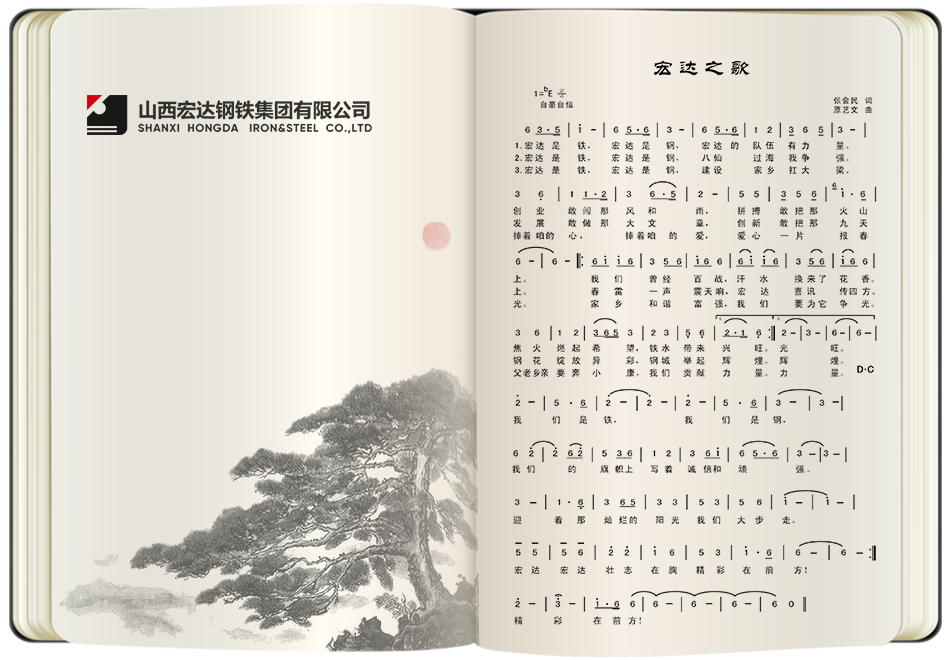 山西宏达钢铁集团有限公司
SHANXI HONGDA IRON&STEEL CO.,LTD
宏达之歌
1=bE
自豪自信
张会民 词
原艺文 曲
6 3·5 | i – | 6 5·6 | 3 – | 6 5·6 | 1 2 | 3 6 5 | 3 – |
1.宏达是 铁, 宏达是 钢, 宏达的 队伍 有力 量。
2.宏达是 铁, 宏达是 钢, 八仙 过海 我争 强。
3.宏达是 铁, 宏达是 钢, 建设 家乡 扛大 梁。
3 6 | 1 1·2 | 3 6·5 | 2 – | 5 5 | 3 5 6 | 6 i·6 |
创业 敢闯那 风和 雨, 拼搏 敢把那 火山
发展 敢做那 大文 章, 创新 敢把那 九天
捧着咱的 心, 捧着咱的 爱, 爱心 一片 报春
6 – | 6 – |: 6 i i 6 | 3 5 6 | i 6 i 6 | 6 i i 6 | 3 5 6 | i 6 6 |
上。 我们 曾经 百战, 汗水 换来了 花香。
上。 春雷 一声 震天响, 宏达 喜讯 传四方。
光。 家乡 和谐 富强, 我们 要为它 争光。
3 6 | 1 2 | 3 6 5 3 | 2 3 | 5 6 | 2·1 6 :| 2 – | 3 – | 6 – | 6 – |
焦火 燃起 希望, 铁水 带来 兴旺。光 旺。
钢花 绽放 异彩, 钢城 举起 辉煌。辉 煌。
父老乡亲 要奔 小康, 我们 贡献 力量。力 量。 D·C
2 – | 5 · 6 | 2 – | 2 – | 2 – | 5 · 6 | 3 – | 3 – |
我们是铁, 我们是钢,
6 2 | 2 6 2 | 5 3 6 | 1 2 | 3 6 i | 6 5·6 | 3 – | 3 – |
我们 的 旗帜上 写着 诚信和 顽 强。
3 – | 1 · 6 | 3 6 5 | 3 3 | 5 3 | 5 6 | i – | i – |
迎 着那 灿烂的 阳光 我们 大步 走。
5 5 | 5 6 | 2 2 | i 6 | 5 3 | i · 6 | 6 – | 6 – :|
宏达 宏达 壮志 在胸 精彩 在前 方!
2 – | 3 – | i·6 6 | 6 – | 6 – | 6 – | 6 0 ‖
精 彩 在前方!